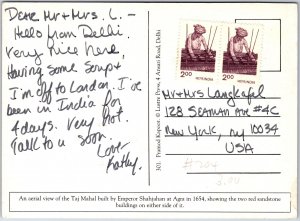 Dear Mr + Mrs. L. –
Hello from Delhi.
Very nice here.
Having some soup +
I'm off to London. I've
been in India for
4 days. Very hot.
Talk to u soon.
Love
Kathy.
301 Printed Kaposer: © Luster Press, 4 Asaf Ali Road, Delhi
2.00
भारत INDIA
2.00
भारत INDIA
Mr + Mrs Langkafel
128 Seaman Ave #4C
New York, NY 10034
USA
An aerial view of the Taj Mahal built by Emperor Shahjahan at Agra in 1654, showing the two red sandstone
buildings on either side of it.